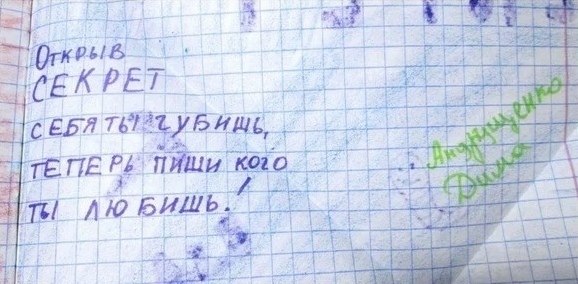 Открыв
СЕКРЕТ
СЕБЯ ТЫ ГУБИШЬ,
ТЕПЕРЬ ПИШИ КОГО
ТЫ ЛЮБИШЬ!
Андрущенко
Дима